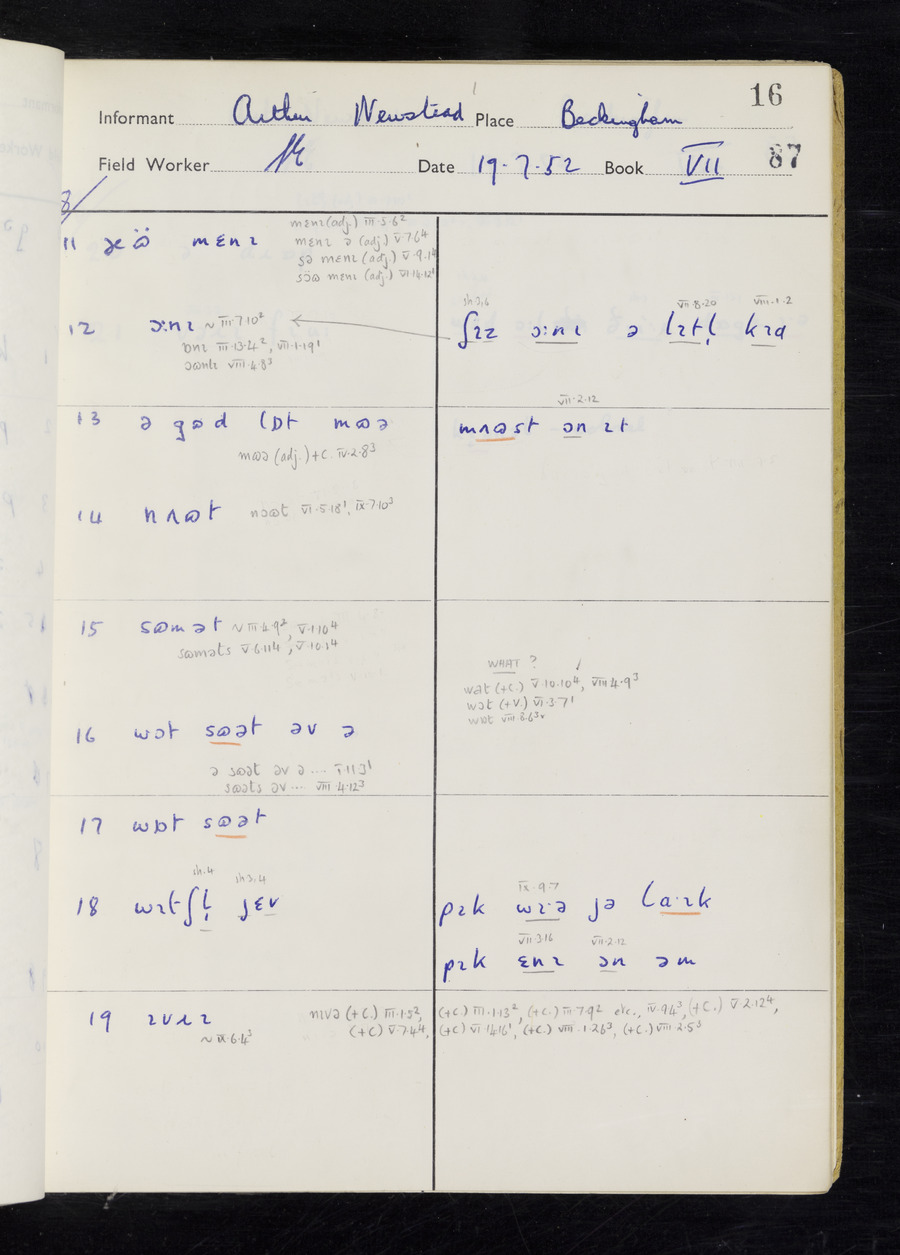 16
Informant Arthur Newstead Place Beckingham
87
Field Worker Date 19.7.52 Book VII
8/
11 mɛnɪ
mɛnɪ (adj.) III.5.6²
mɛnɪ ə (adj.) V.7.6⁴
sə mɛnɪ (adj.) V.9.1⁴
mɛnɪ (adj.) VI.14.12¹
12 ɔ:nɪ ~ III.7.10²
ɒnɪ III.13.4², VII.1.19¹
VIII.4.8³
sh 3,6 VII.8.20 VIII.1.2
ʃɪz ɔ:nɪ ə lɪtl̩ kɪd
13 ə gɷd lɒt mɷə
mɷə (adj.) + C. IV.2.8³
VII.2.12
mʌɷst ɔn ɪt
14 nʌɷt nɔɷt VI.5.18¹, IX.7.10³
15 sɷmət ~ III.4.9², V.1.10⁴
sɷməts V.6.11⁴, V.10.1⁴
WHAT ?
wət (+C.) V.10.10⁴, VIII.4.9³
wɔt (+V.) VI.3.7¹
16 wɔt sɷət əv ə
ə sɷət əv ə ....
sɷəts əv .... VIII.4.12³
17 wɒt sɷət
sh.4 sh 3,4
18 wɪtʃl̩ jɛv
IX.9.7
pɪk wɪ·ə jə la·ɪk
VII.3.16 VII.2.12
pɪk ɛnɪ ɔn əm
19 ɪvɹɪ
~ IX.6.4³
nɪvə (+C.) III.1.5², (+C.) III.1.13², (+C.) III.7.9² etc., IV.9.4³, (+C.) V.2.12⁴,
(+C) V.7.4⁴, (+C) VI.14.16¹, (+C.) VIII.1.26³, (+C.) VIII.2.5³